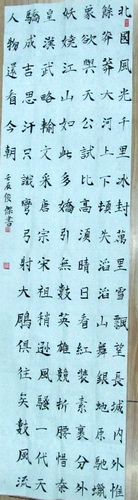 北國風光千里冰封萬里雪飄望長城內外惟
餘莽莽大河上下頓失滔滔山舞銀蛇原馳蠟
象欲與天公試比高須晴日看紅裝素裹分外
妖嬈江山如此多嬌引無數英雄競折腰惜秦
皇漢武略輸文采唐宗宋祖稍遜風騷一代天
驕成吉思汗只識彎弓射大鵰俱往矣數風流
人物還看今朝
壬辰俊傑書